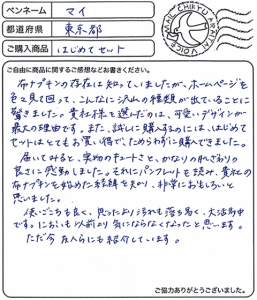 ペンネーム マイ
都道府県 東京都
ご購入商品 はじめてセット
MAN CHIKU ARIGATAI VOICE
ご自由に商品に関するご感想などお書きください。
布ナプキンの存在は知っていましたが、ホームページを
色々見て回って、こんなに沢山の種類が出ていることに
驚きました。貴社様を選んだのは、可愛いデザインが
最大の理由です。また、試しに購入するのには、はじめて
セットはとてもお買い得で、ためらわずに購入できました。
届いてみると、実物のキュートさと、かなりの
良さに感動しました。それにパンフレットを読み、貴社の
布ナプキンを始めた経緯を知り、非常におもしろいと
思いました。
使いごこちも良く、思ったより汚れも落ち易く、大活躍中
です。においも以前より気にならなくなったと思います。
ただ今 友人らにも紹介しています。
ご協力ありがとうございました。